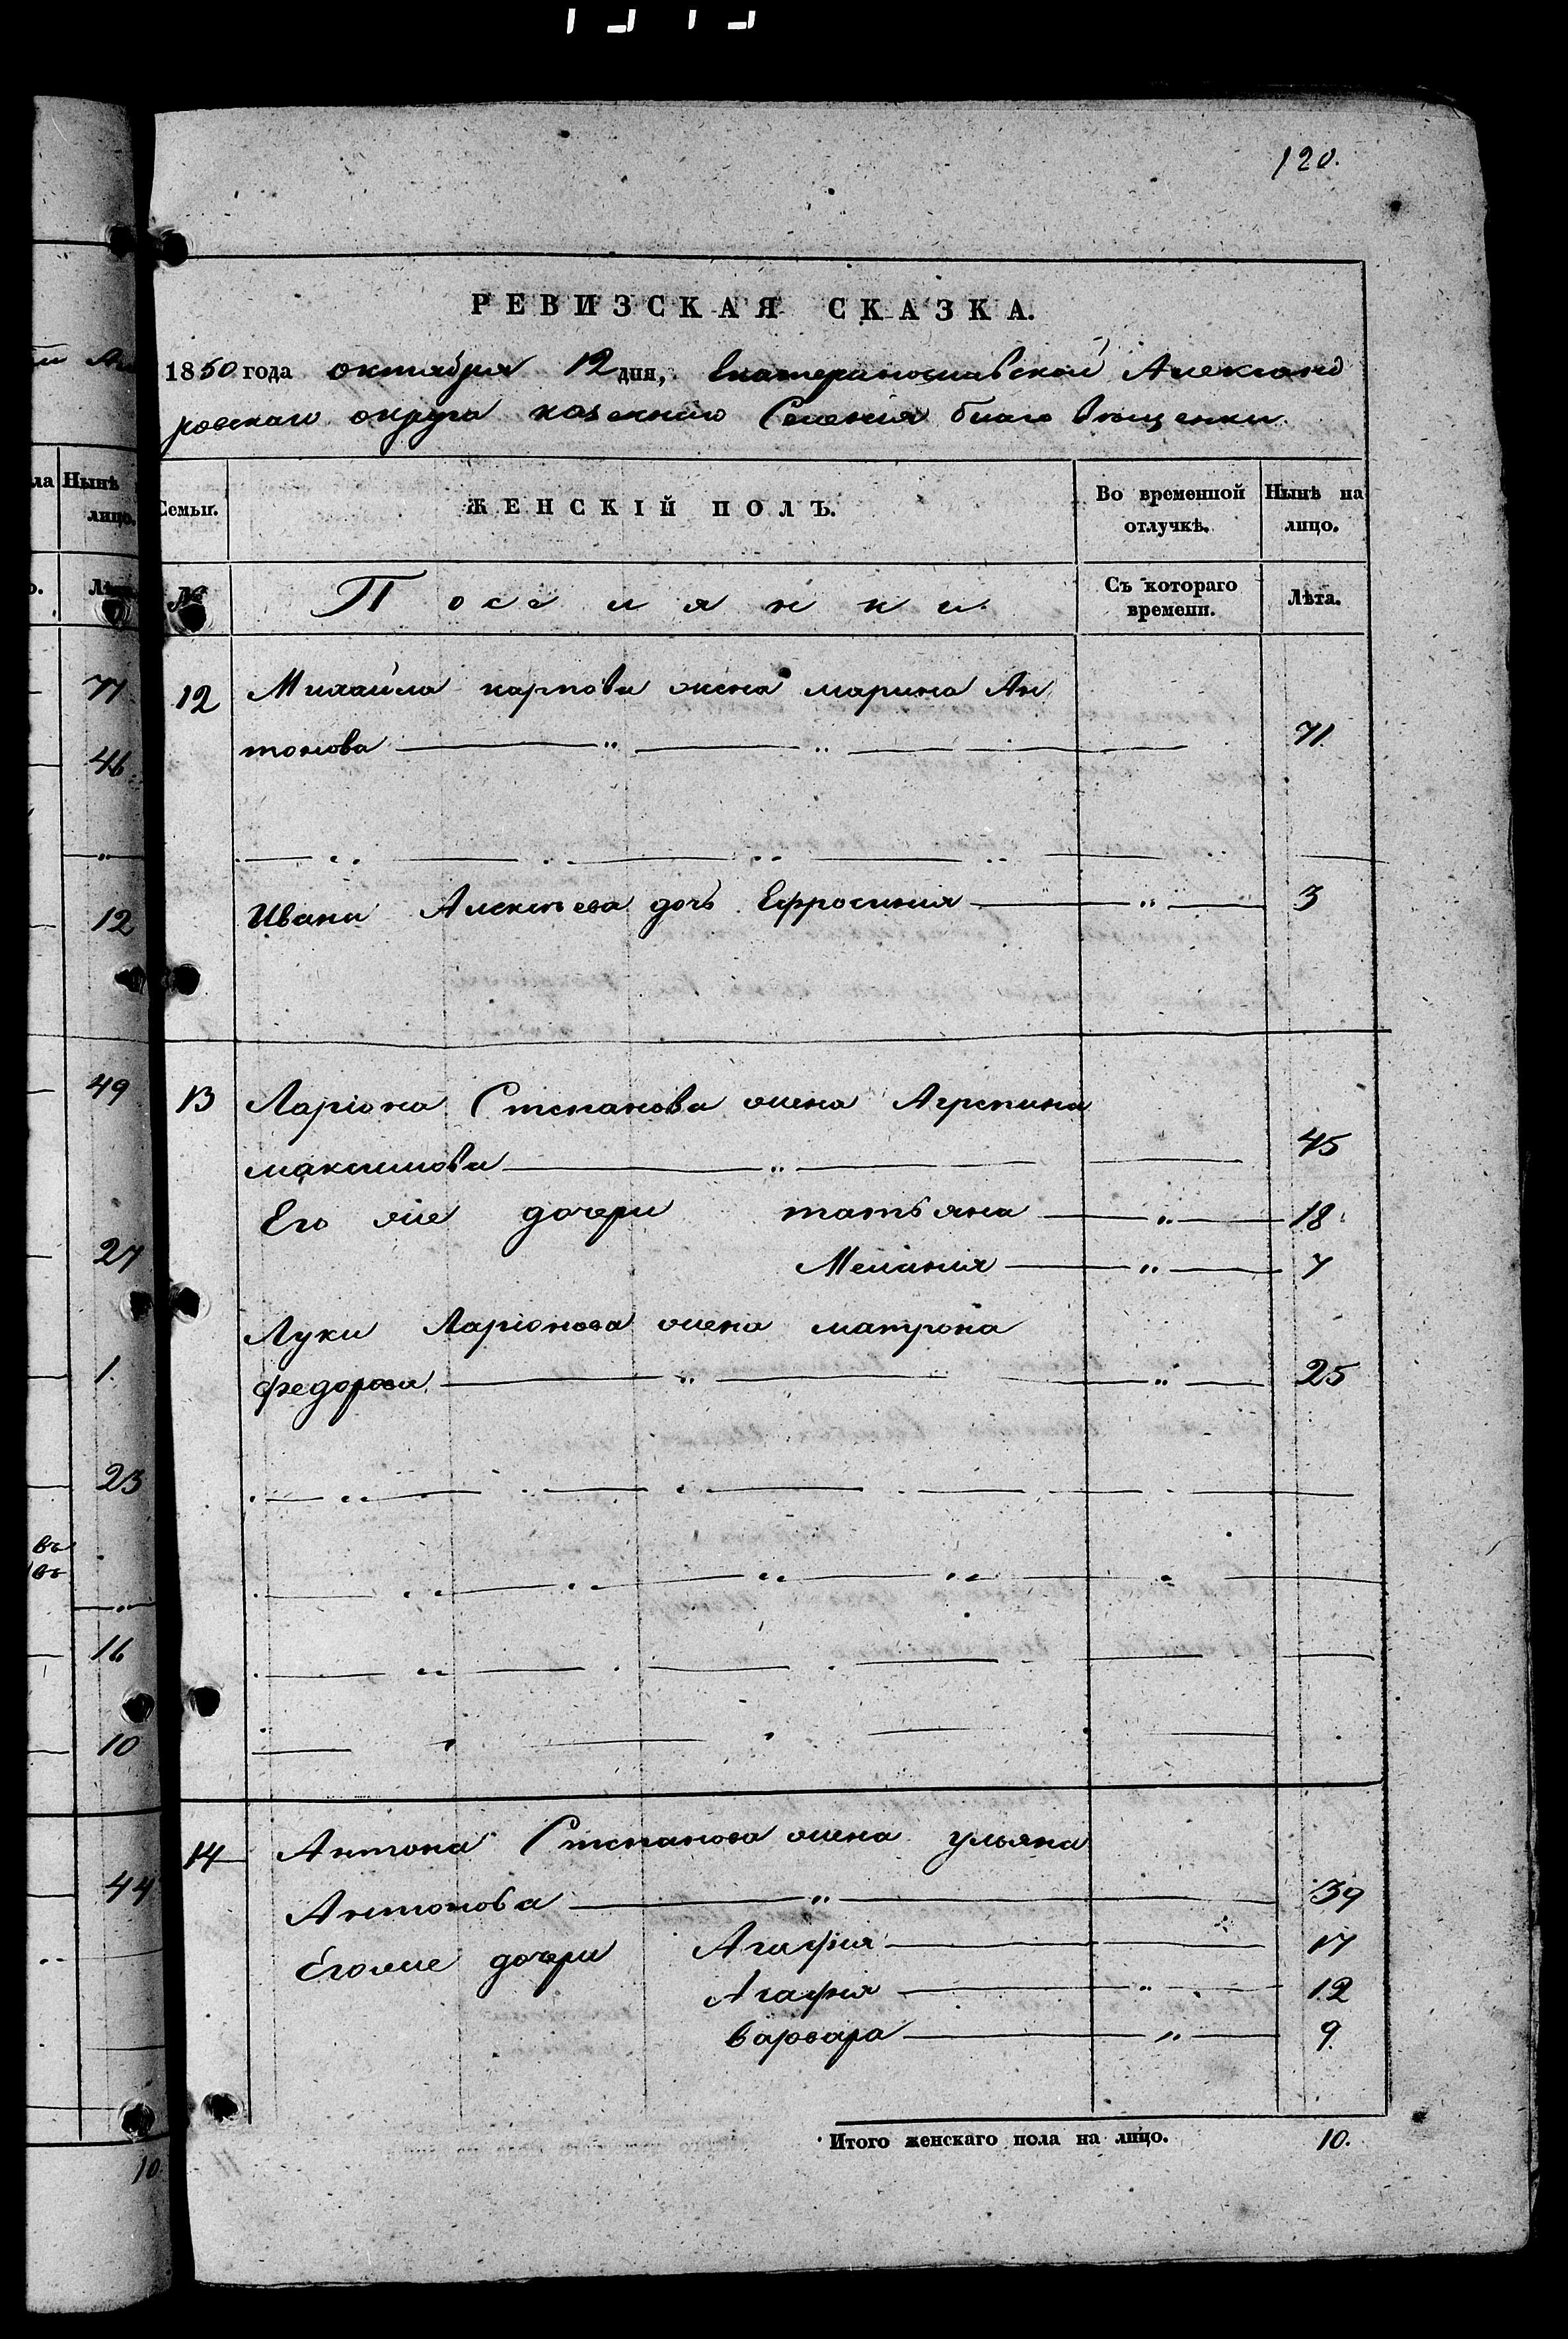 120.
РЕВИЗСКАЯ СКАЗКА.
1850 года октября 12 дня, Екатеринославской Александ
ровскаго округа казеннаго Селения благовѣщенки
Семьи. ЖЕНСКІЙ ПОЛЪ. Во временной отлучкѣ. Нынѣ на лицо.
№ Поселянки. Съ котораго времени. Лѣта.
12 Михайла карпова жена марина Ан
тонова 71.
Ивана Алексѣева дочь Ефросиния 3
13 Ларіона Степанова жена Агрепина
максимова 45
Его же дочери татьяна 18
Мелания 7
Луки Ларіонова жена матрона
федорова 25
14 Антона Степанова жена ульяна
Антонова 39
Егоже дочери Агафия 17
Агафия 12
варвара 9.
Итого женскаго пола на лицо. 10.
ла Нынѣ
лицо.
71
46
12
49
27
1.
23
въ
16
10
44
10